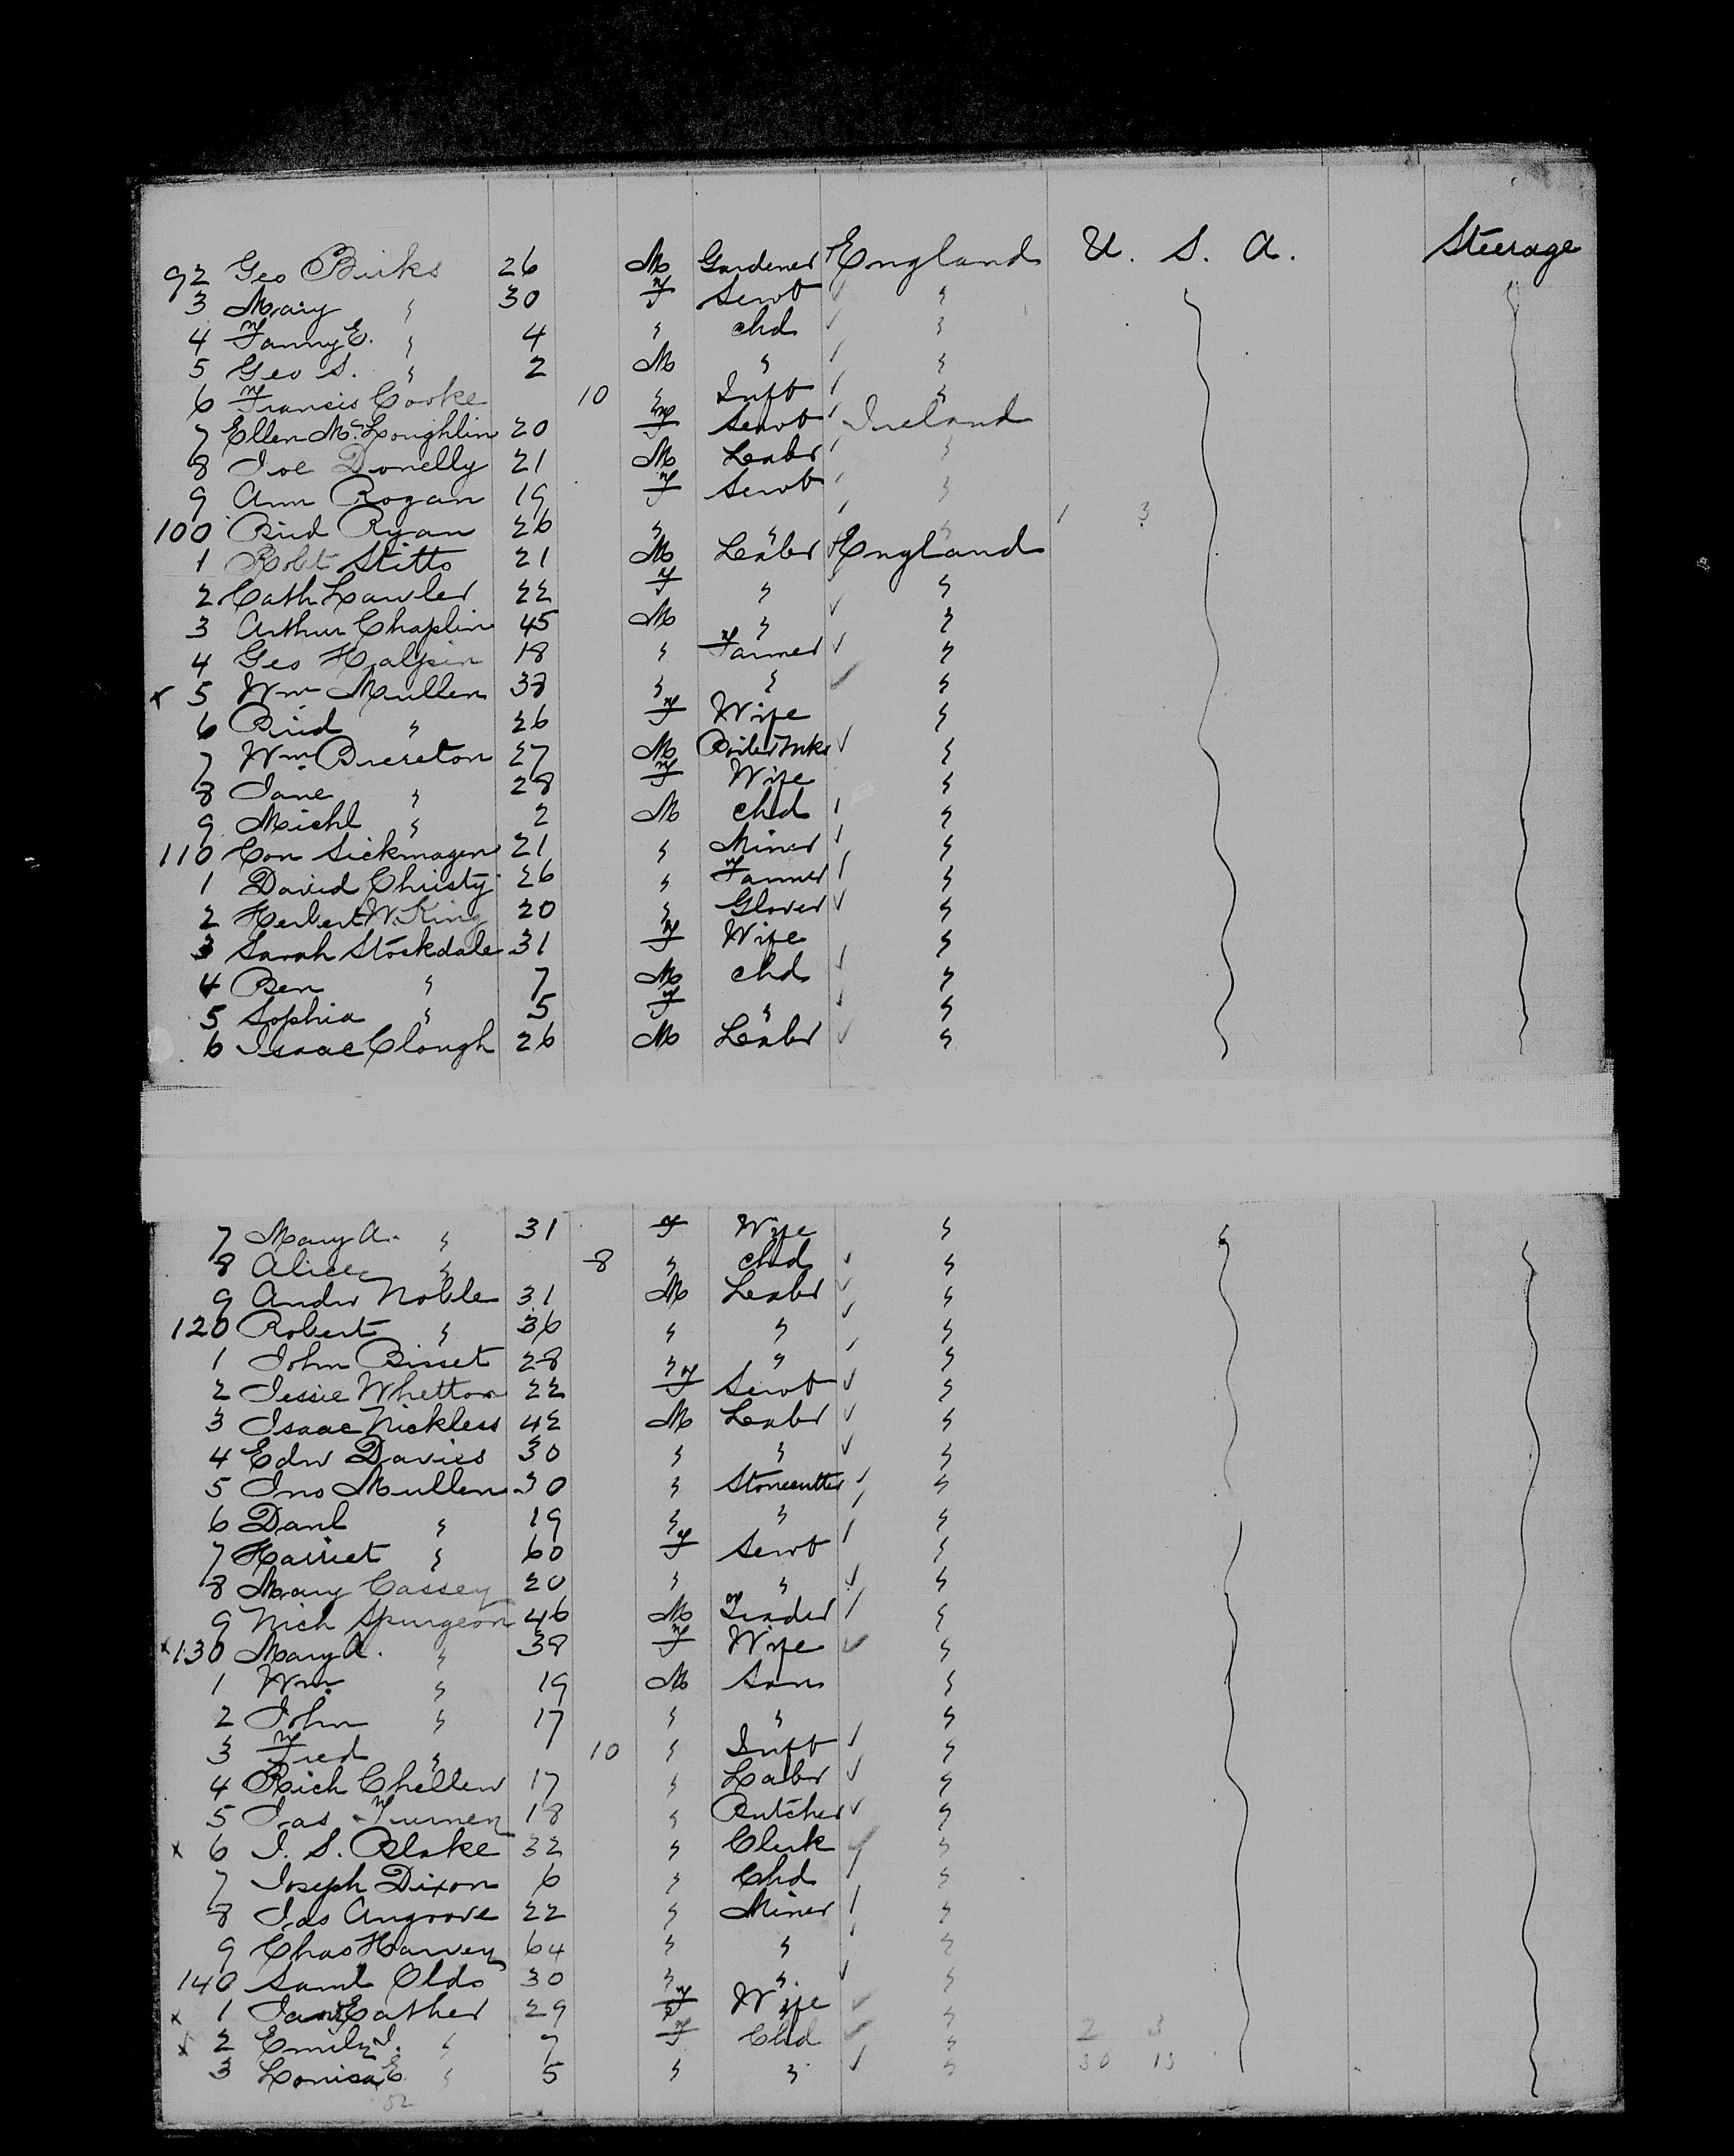 92 Geo Birks 26 M Gardener England U. S. A. Steerage
3 Mary " 30 F Servt "
4 Fanny E. " 4 " chd "
5 Geo S. " 2 M " "
6 Francis Cooke 10 " Inft "
7 Ellen McLoughlin 20 F Servt Ireland
8 Joe Donelly 21 M Labr "
9 Ann Rogan 19 F Servt "
100 Brid Ryan 26 " " " 1 3
1 Robt Stitts 21 M Labr England
2 Cath Lawler 22 F " "
3 Arthur Chaplin 45 M " "
4 Geo Halpin 18 " Farmer "
x 5 Wm Mullen 38 " " "
6 Brid " 26 F Wife "
7 Wm Brereton 27 M Boilermkr "
8 Jane " 28 F Wife "
9 Michl " 2 M chd "
110 Con Sickmagen 21 " Miner "
1 David Christy 26 " Farmer "
2 Herbert W. King 20 " Glover "
3 Sarah Stockdale 31 F Wife "
4 Ben " 7 M chd "
5 Sophia " 5 F " "
6 Isaac Clough 26 M Labr "
7 Mary A. " 31 F Wife "
8 Alice " 8 " chd "
9 Andw Noble 31 M Labr "
120 Robert " 36 " " "
1 John Bisset 28 " " "
2 Jessie Whetton 22 F Servt "
3 Isaac Nickless 42 M Labr "
4 Edw Davies 30 " " "
5 Jno Mullen 30 " Stonecutter "
6 Danl " 19 " " "
7 Harriet " 60 F Servt "
8 Mary Cassey 20 " " "
9 Nich Spurgeon 46 M Trader "
x 130 Mary A. " 38 F Wife "
1 Wm " 19 M Son "
2 John " 17 " " "
3 Fred " 10 " Inft "
4 Rich Chellew 17 " Labr "
5 Jas Turner 18 " Butcher "
x 6 J. S. Blake 32 " Clerk "
7 Joseph Dixon 6 " Chd "
8 Jas Angrove 22 " Miner "
9 Chas Harvey 64 " " "
140 Saml Olds 30 " " "
x 1 Cather 29 F Wife "
x 2 Emily J. " 7 F Chd " 2 3
3 Louisa E " 5 " " " 30 13
52